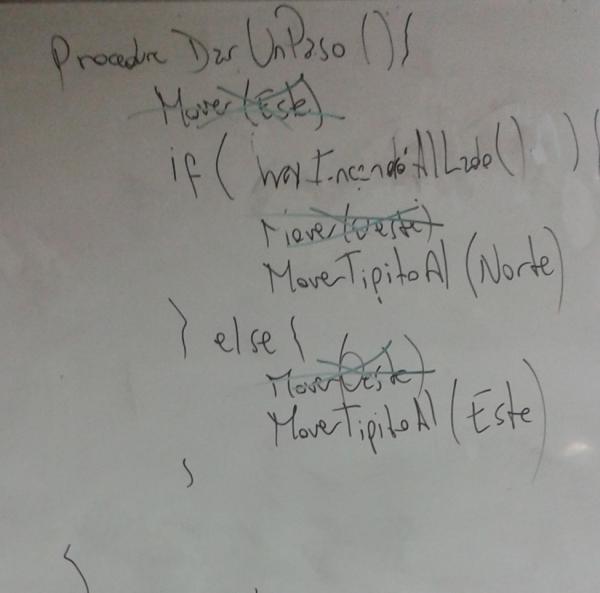 Procedure DarUnPaso(){
Mover(Este)
if( hayIncendioAlLado() ){
Mover(Oeste)
MoverTipitoAl(Norte)
} else {
Mover(Oeste)
MoverTipitoAl(Este)
}
}